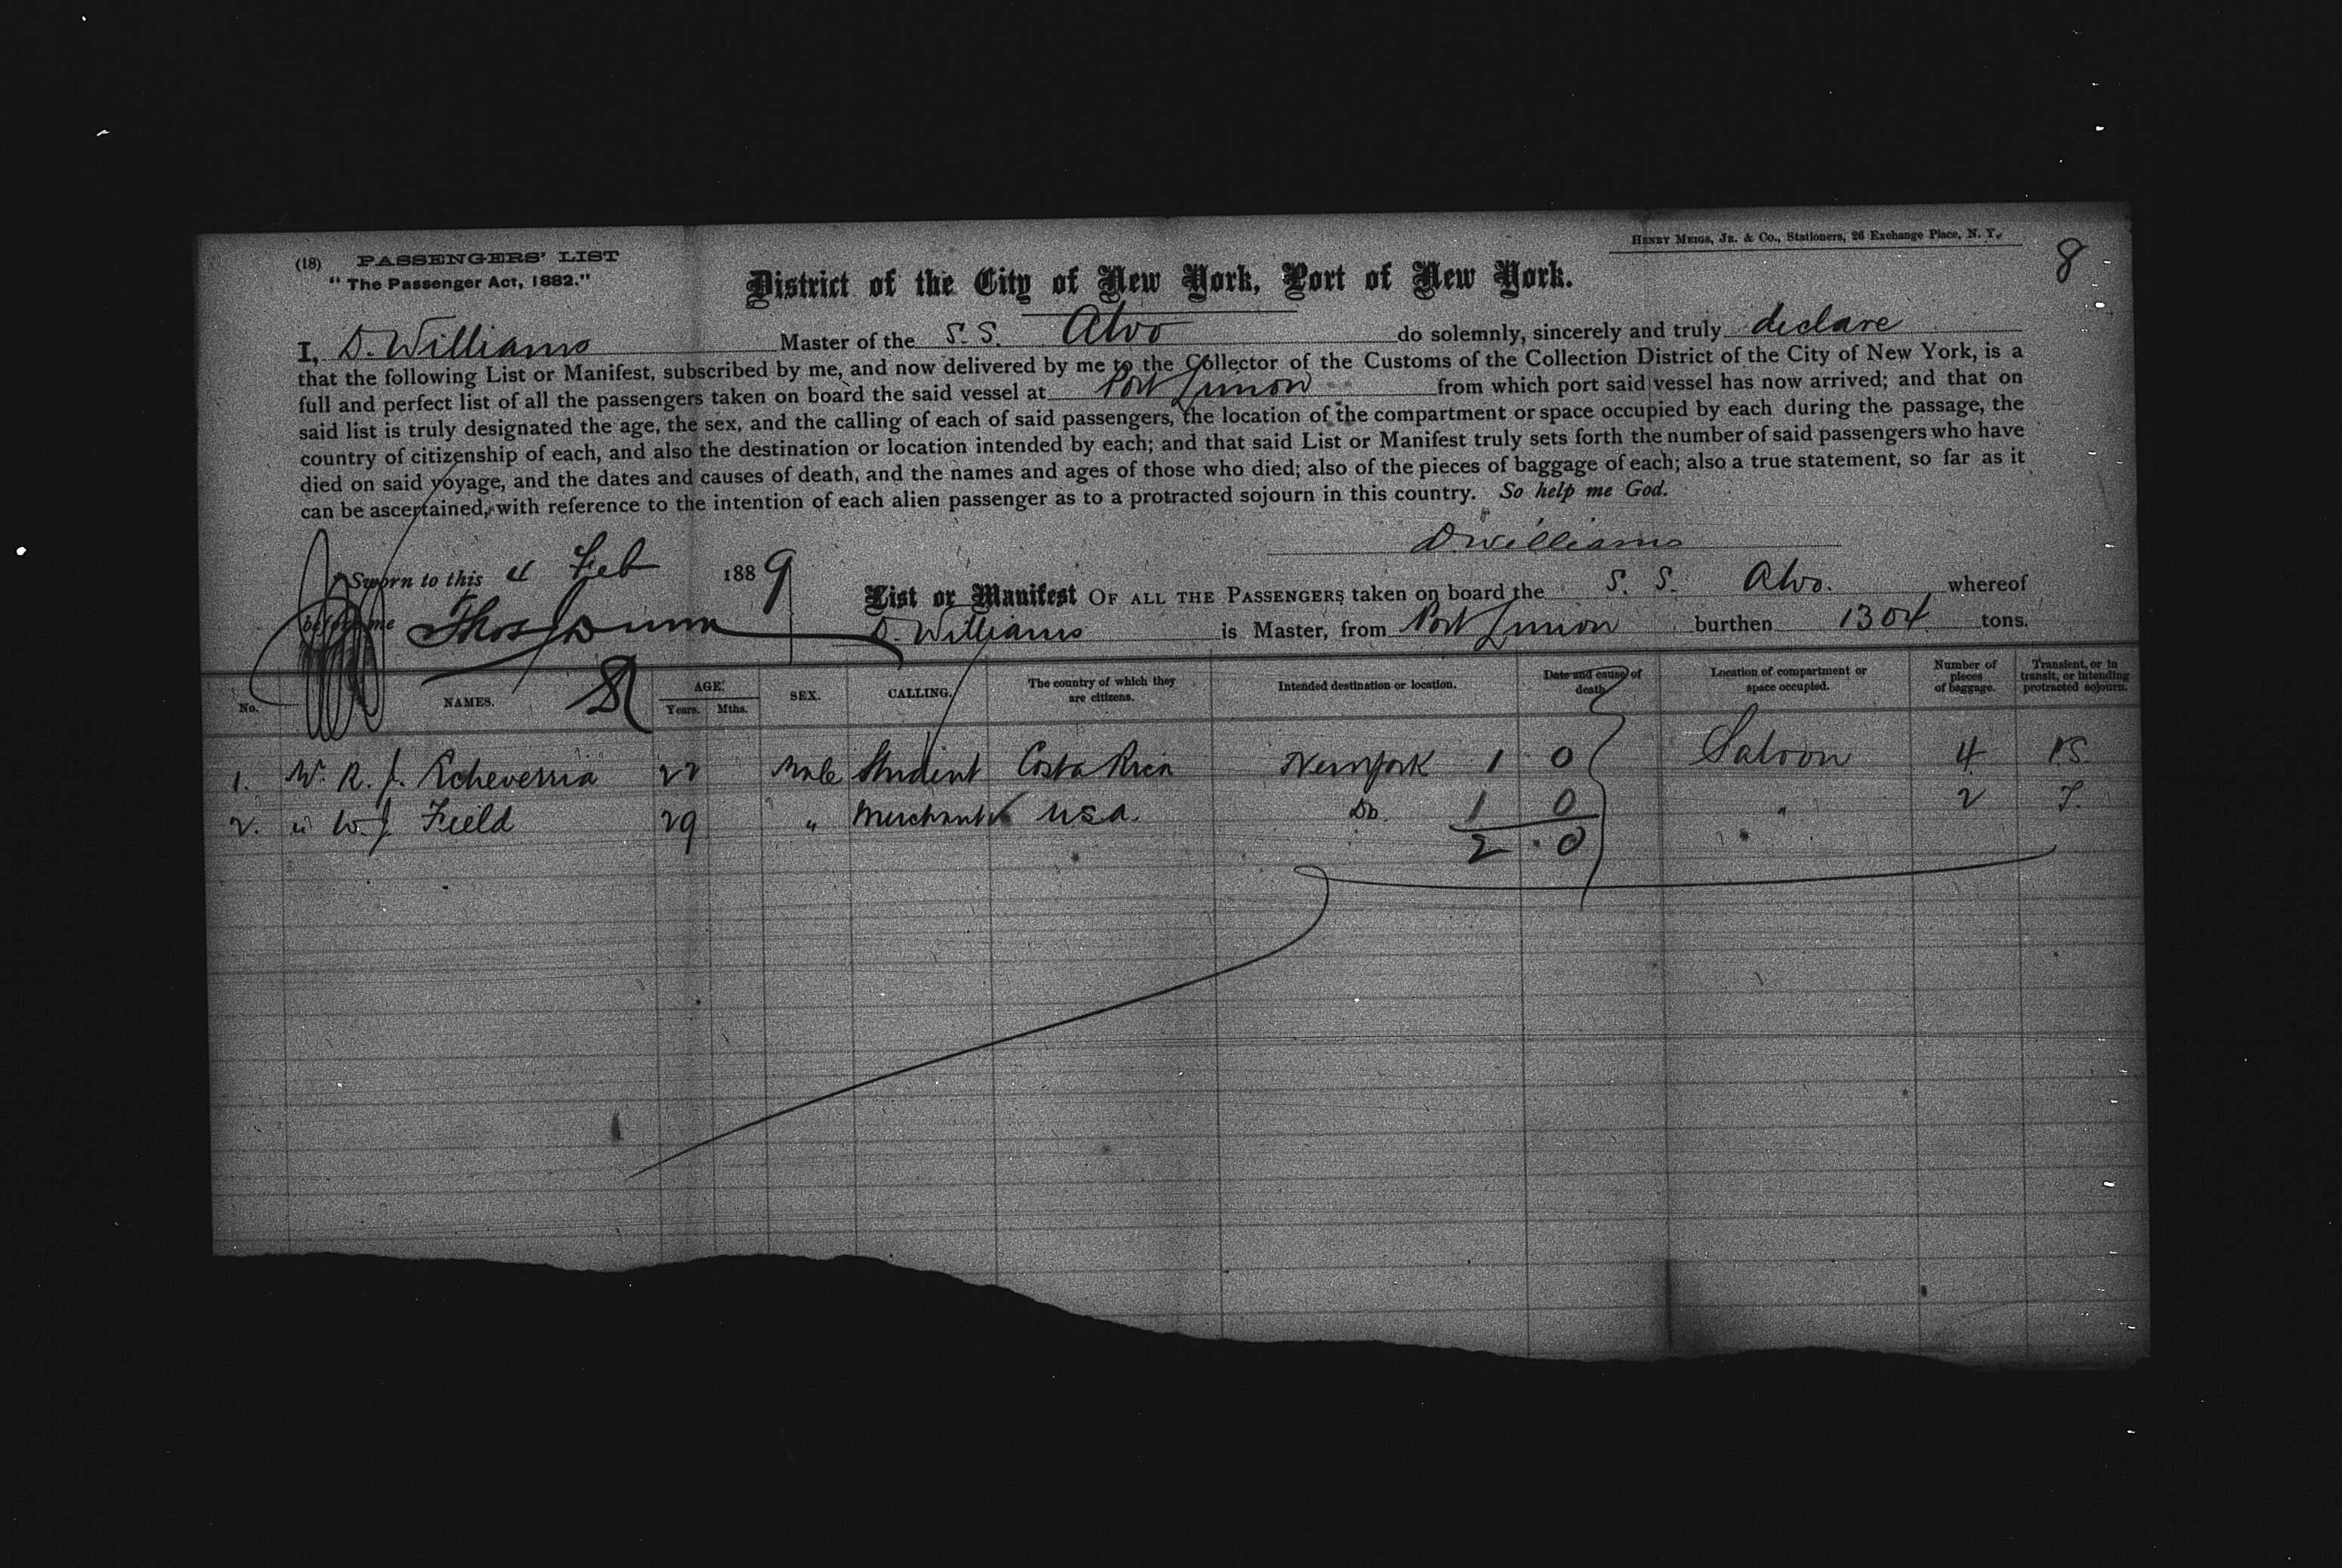 HENRY MEIGS, JR. & CO., Stationers, 26 Exchange Place, N. Y.
8
(18) PASSENGERS' LIST
"The Passenger Act, 1882."
District of the City of New York, Port of New York.
I, D. Williams Master of the S. S. Alvo do solemnly, sincerely and truly declare
that the following List or Manifest, subscribed by me, and now delivered by me to the Collector of the Customs of the Collection District of the City of New York, is a
full and perfect list of all the passengers taken on board the said vessel at Port Limon from which port said vessel has now arrived; and that on
said list is truly designated the age, the sex, and the calling of each of said passengers, the location of the compartment or space occupied by each during the passage, the
country of citizenship of each, and also the destination or location intended by each; and that said List or Manifest truly sets forth the number of said passengers who have
died on said voyage, and the dates and causes of death, and the names and ages of those who died; also of the pieces of baggage of each; also a true statement, so far as it
can be ascertained, with reference to the intention of each alien passenger as to a protracted sojourn in this country. So help me God.
D Williams
Sworn to this 4 Feb 1889
before me Thos Dunn
List or Manifest OF ALL THE PASSENGERS taken on board the S. S. Alvo. whereof
D. Williams is Master, from Port Limon burthen 1304 tons.
No. NAMES. AGE. Years. Mths. SEX. CALLING. The country of which they are citizens. Intended destination or location. Date and cause of death. Location of compartment or space occupied. Number of pieces of baggage. Transient, or in transit, or intending protracted sojourn.
1. Mr. R. J. Echeverria 22 Male Student Costa Rica New York 1 0 Saloon 4 P.S.
2. " W. J. Field 29 " Merchant U S a. Do 1 0 " 2 T.
2 . 0